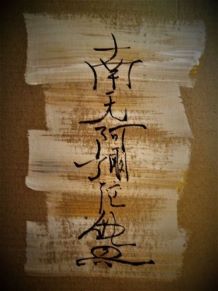 南无阿彌陀